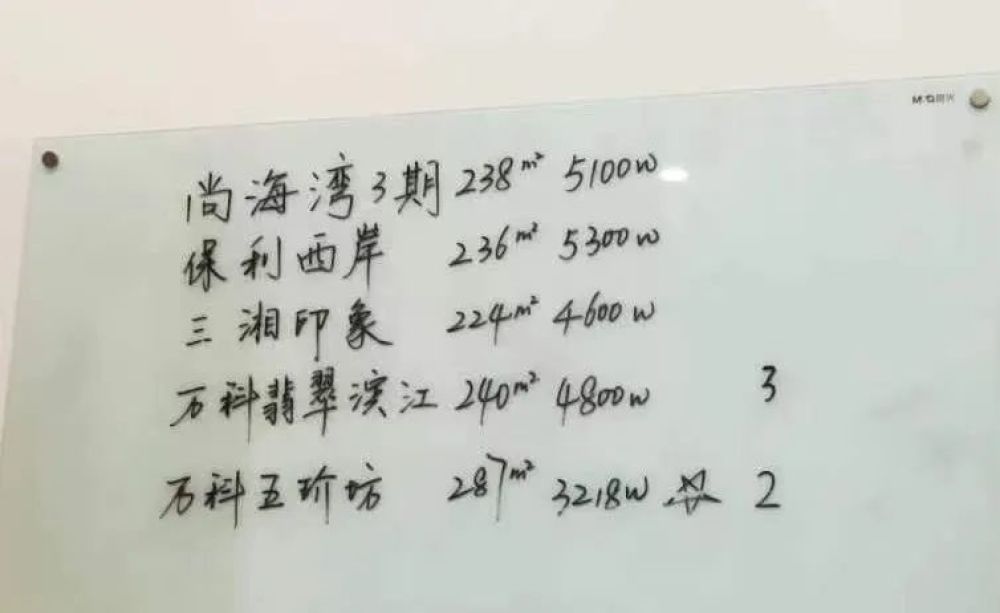 M&G晨光
尚海湾3期 238m² 5100w
保利西岸 236m² 5300w
三湘印象 224m² 4600w
万科翡翠滨江 240m² 4800w 3
万科五玠坊 287m² 3218w ☆ 2